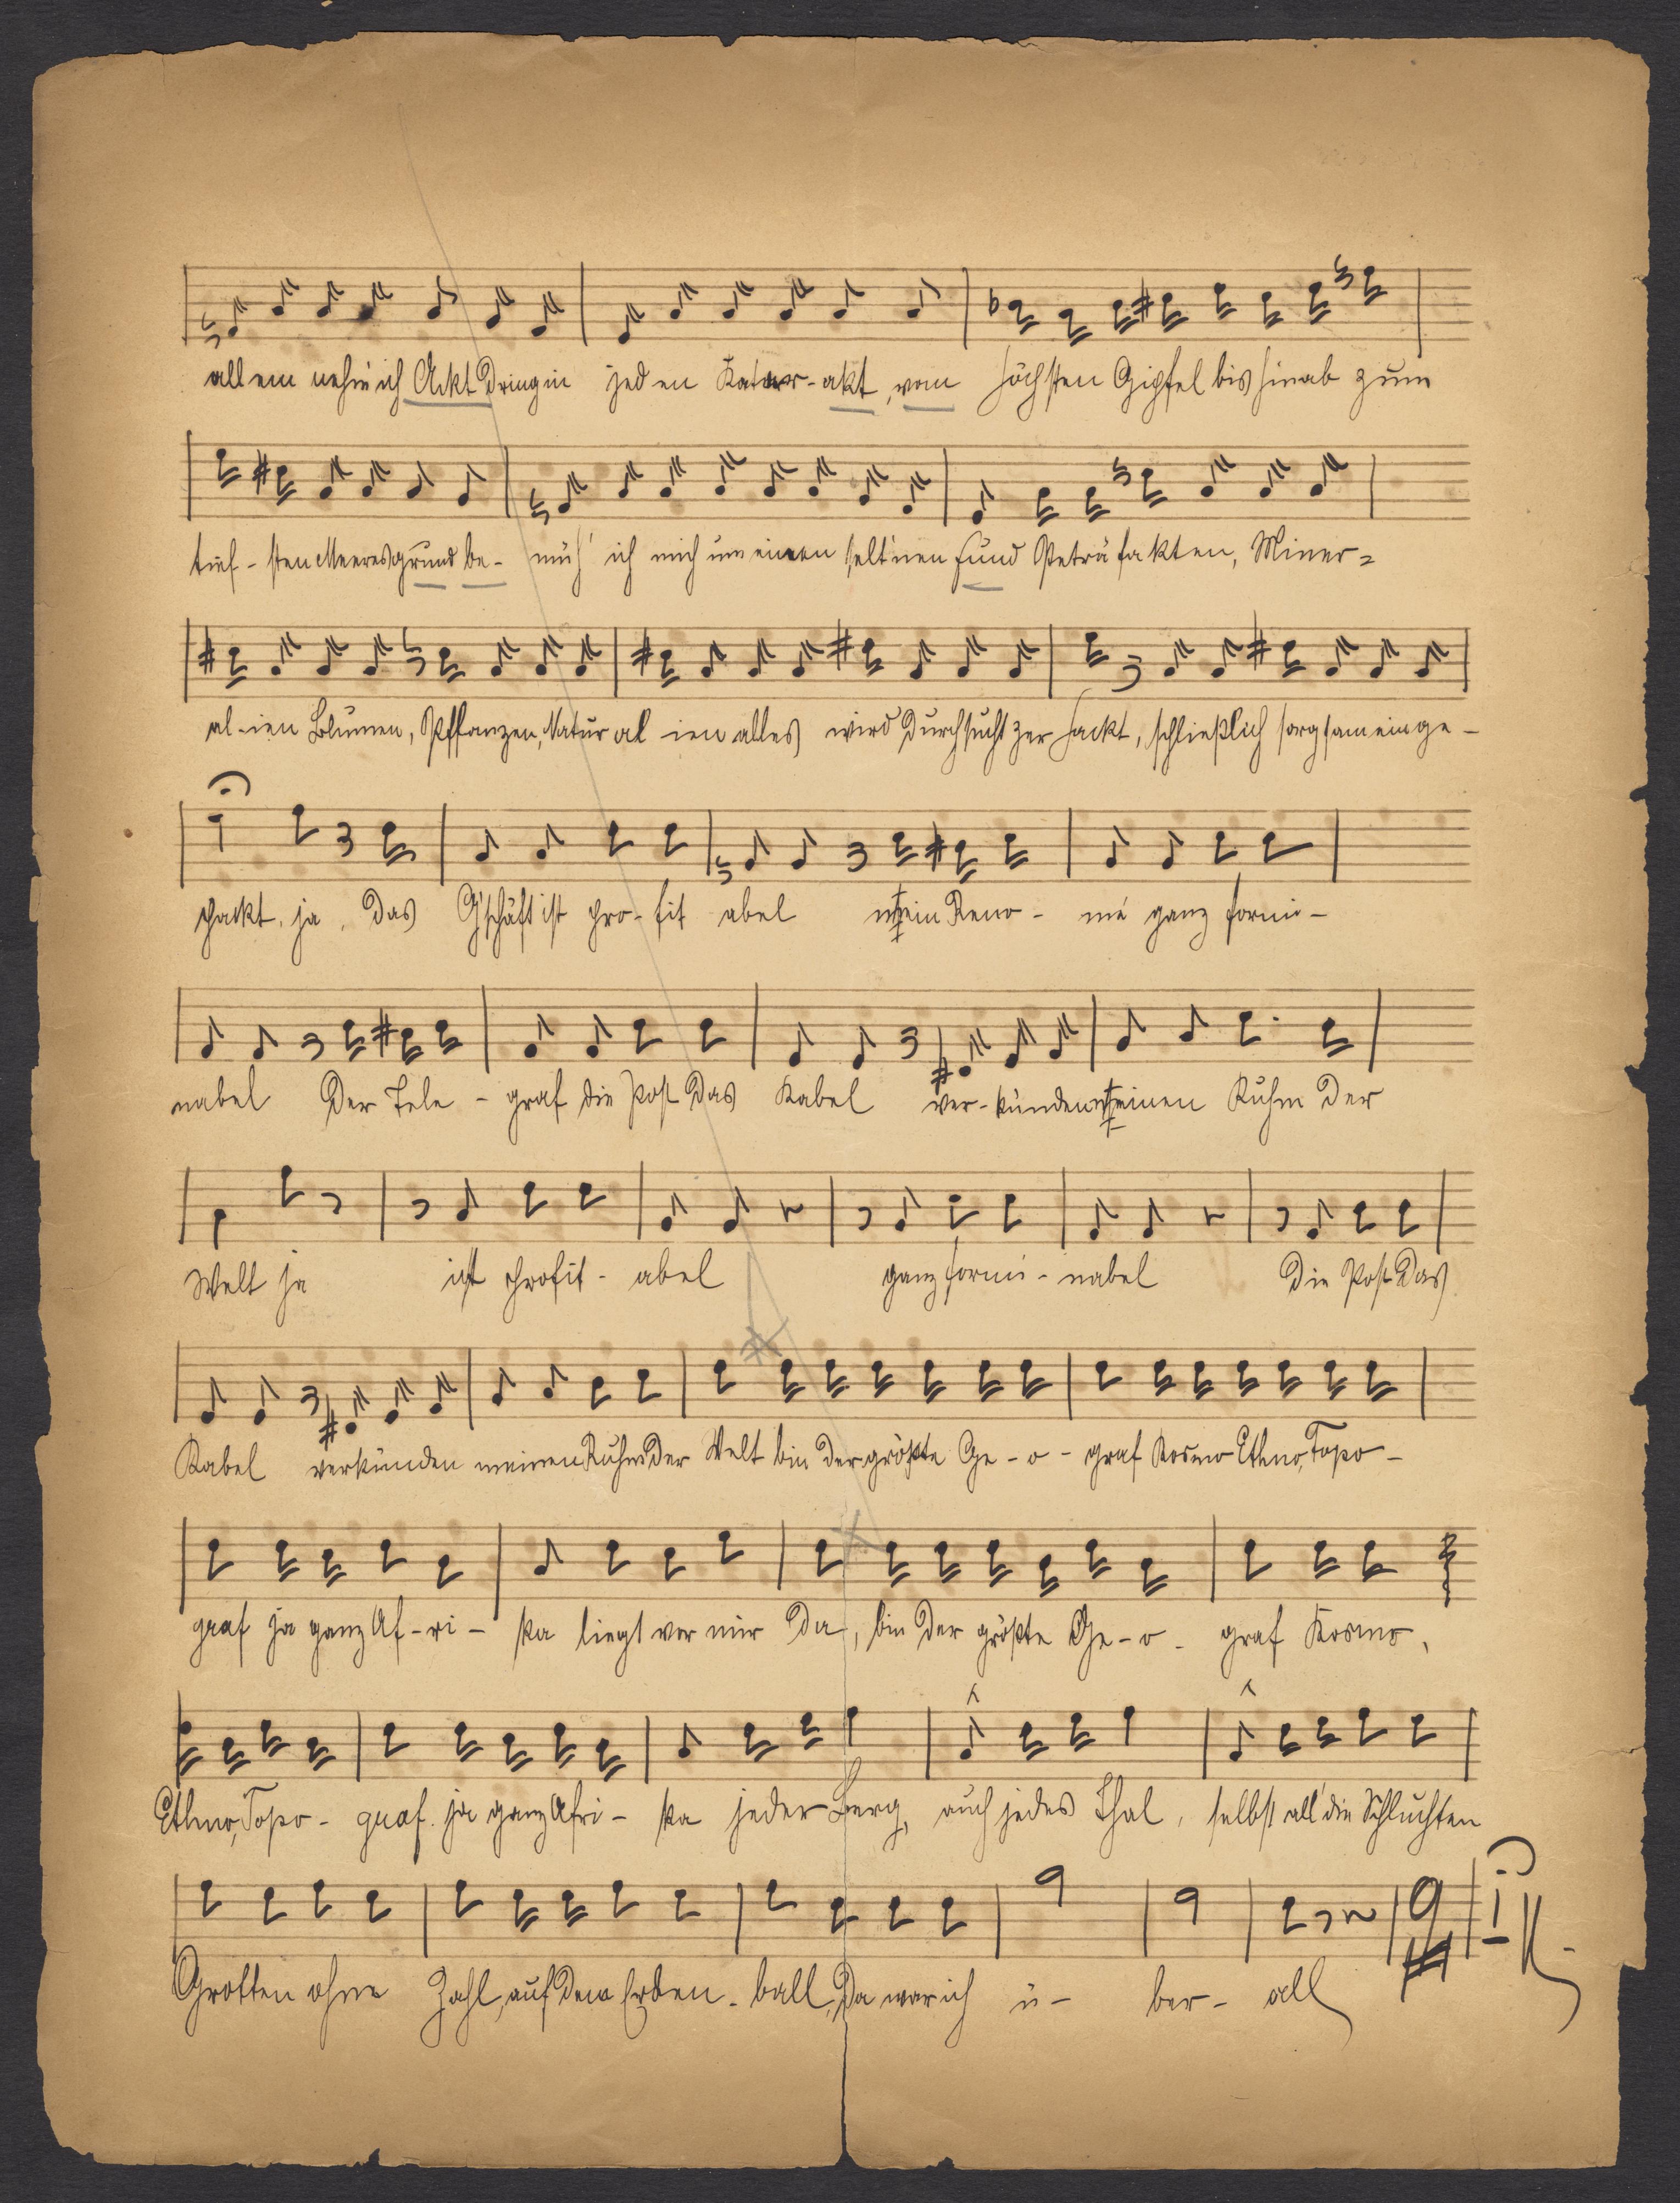 allem nehm ich Ackt Dring in jeden Katar-akt, vom höchsten Gipfel bis hinab zum
tief-sten Meeresgrund be- müh' ich mich um einen selt'nen Fund Peträfakten, Miner=
al-ien Blumen, Pflanzen, Natural ien alles wird Durchsucht zer hackt, schließlich sorgsam einge-
packt, ja, Das G'schäft ist pro-fit abel mein Reno- mé ganz formi-
nabel Der Tele- graf die Post Das Kabel ver-künden meinen Ruhm Der
Welt ja ist profit-abel ganz formi-nabel Die Post Das
Kabel verkünden meinen Ruhm Der Welt bin der größte Ge-o-graf Kosmo Ethno, Topo-
graf ja ganz Af-ri- ka liegt vor mir Da, bin Der größte Ge-o- graf Kosmo,
Ethno, Topo- graf. ja ganz Afri- ka jeder Berg, auch jedes Thal, selbst all' die Schluchten
Grotten ohne Zahl, auf Dem Erden-ball, Da war ich ü- ber- all